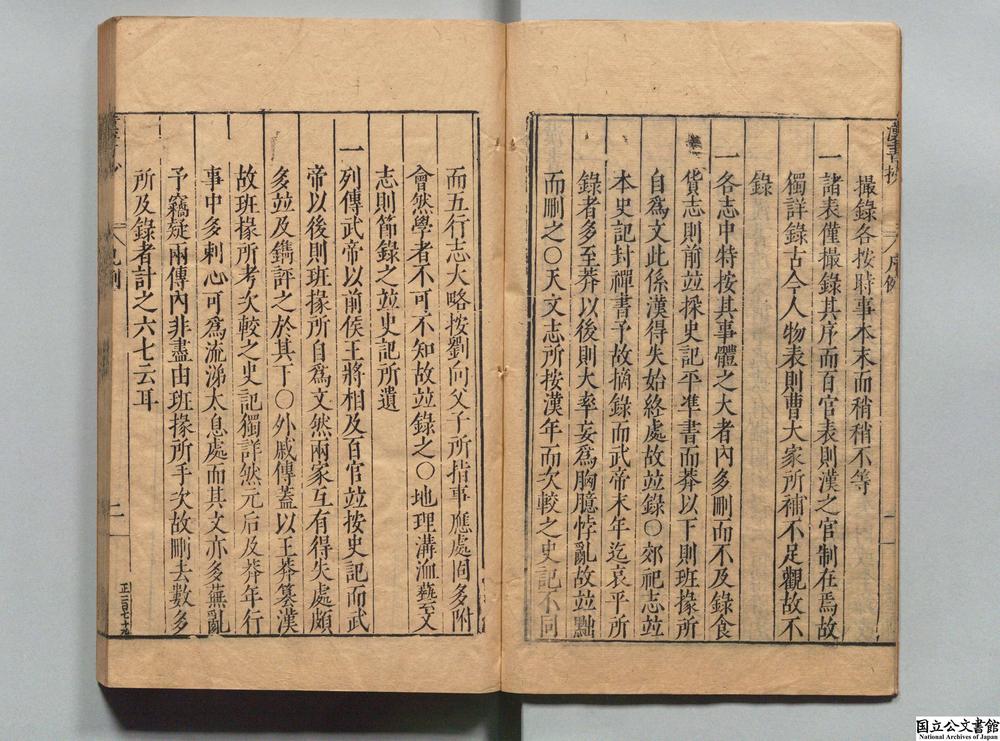 漢書抄
凡例
撮錄各按時事本末而稍稍不等
一諸表僅撮錄其序而百官表則漢之官制在焉故
獨詳錄古今人物表則曹大家所補不足觀故不
錄
一各志中特按其事體之大者內多刪而不及錄食
貨志則前竝採史記平準書而莽以下則班掾所
自爲文此係漢得失始終處故竝錄〇郊祀志竝
本史記封禪書予故摘錄而武帝末年迄哀平所
錄者多至莽以後則大率妄爲胸臆悖亂故竝黜
而刪之〇天文志所按漢年而次較之史記不同
而五行志大略按劉向父子所指事應處間多附
會然學者不可不知故竝錄之〇地理溝洫藝文
志則節錄之竝史記所遺
一列傳武帝以前侯王將相及百官竝按史記而武
帝以後則班掾所自爲文然兩家互有得失處頗
多竝及鐫評之於其下〇外戚傳蓋以王莽篡漢
故班掾所考次較之史記獨詳然元后及莽年行
事中多刺心可爲流涕太息處而其文亦多蕪亂
予竊疑兩傳內非盡由班掾所手次故刪去數多
所及錄者計之六七云耳
凡例
二
国立公文書館
National Archives of Japan